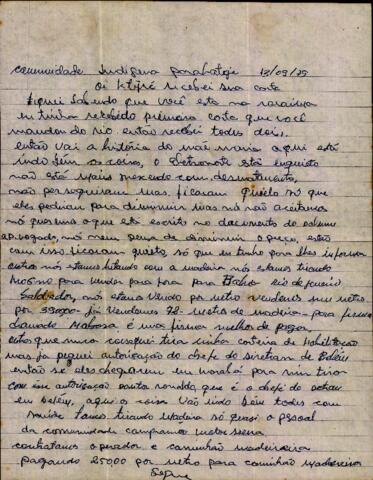 comunidade Indígena Parakateje 13/09/79
Oi Ktijré recebei sua carta
fiquei sabendo que você esta na
eu tinha recebido primeira carta que você
mandou do rio então recebei todas dois.
então vai a história do mãe maria aqui está
indo bem as coisa, o Eletronorte stá enquisto
não está mais mexendo com desmatamento,
não perseguiram mas, ficaram quieto só que
eles pediram para diminuir mas nós não aceitamos
nós queremo o que está escrito no documento do
advogado, nós nem pensa de diminuir o preço, então
com isso ficaram quieto, só que eu tinho para lhes informa
outros nós estamos lutando com a madeira nós estamos tirando
para vender para fora para Itália rio de janeiro
Salvador, nós estamo vendo por metro vendemos um metro
por já Vendemos 72-metro de madeira - para firma
chamado é uma firma melhor de pagar,
outos que nunca consegui tira minha carteira de Habilitação
mas já peguei autorização do chefe do diretram de Belém
então se eles chegarem em marabá para mim tirar
com autorização que é o chefe do detran
em belém, aqui as coisa vão indo bem todos com
saúde tamos tirando madeira só quasi o pesoal
da comunidade campramos motor serra
contratamos operador e caminhão madeireira
pagando 25000 por metro para caminhão madeireira